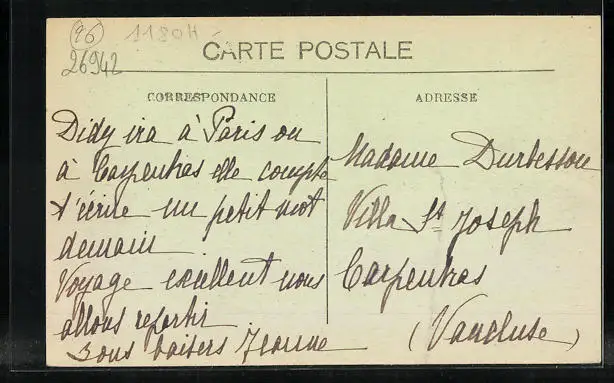 (26)
1180H
26942
CARTE POSTALE
CORRESPONDANCE
Didy ira à Paris ou
à Carpentras elle compte
t'écrire un petit mot
demain
Voyage excellent nous
allons repartir
Bons baisers Jeanne
ADRESSE
Madame Durbesson
Villa St Joseph
Carpentras
(Vaucluse)